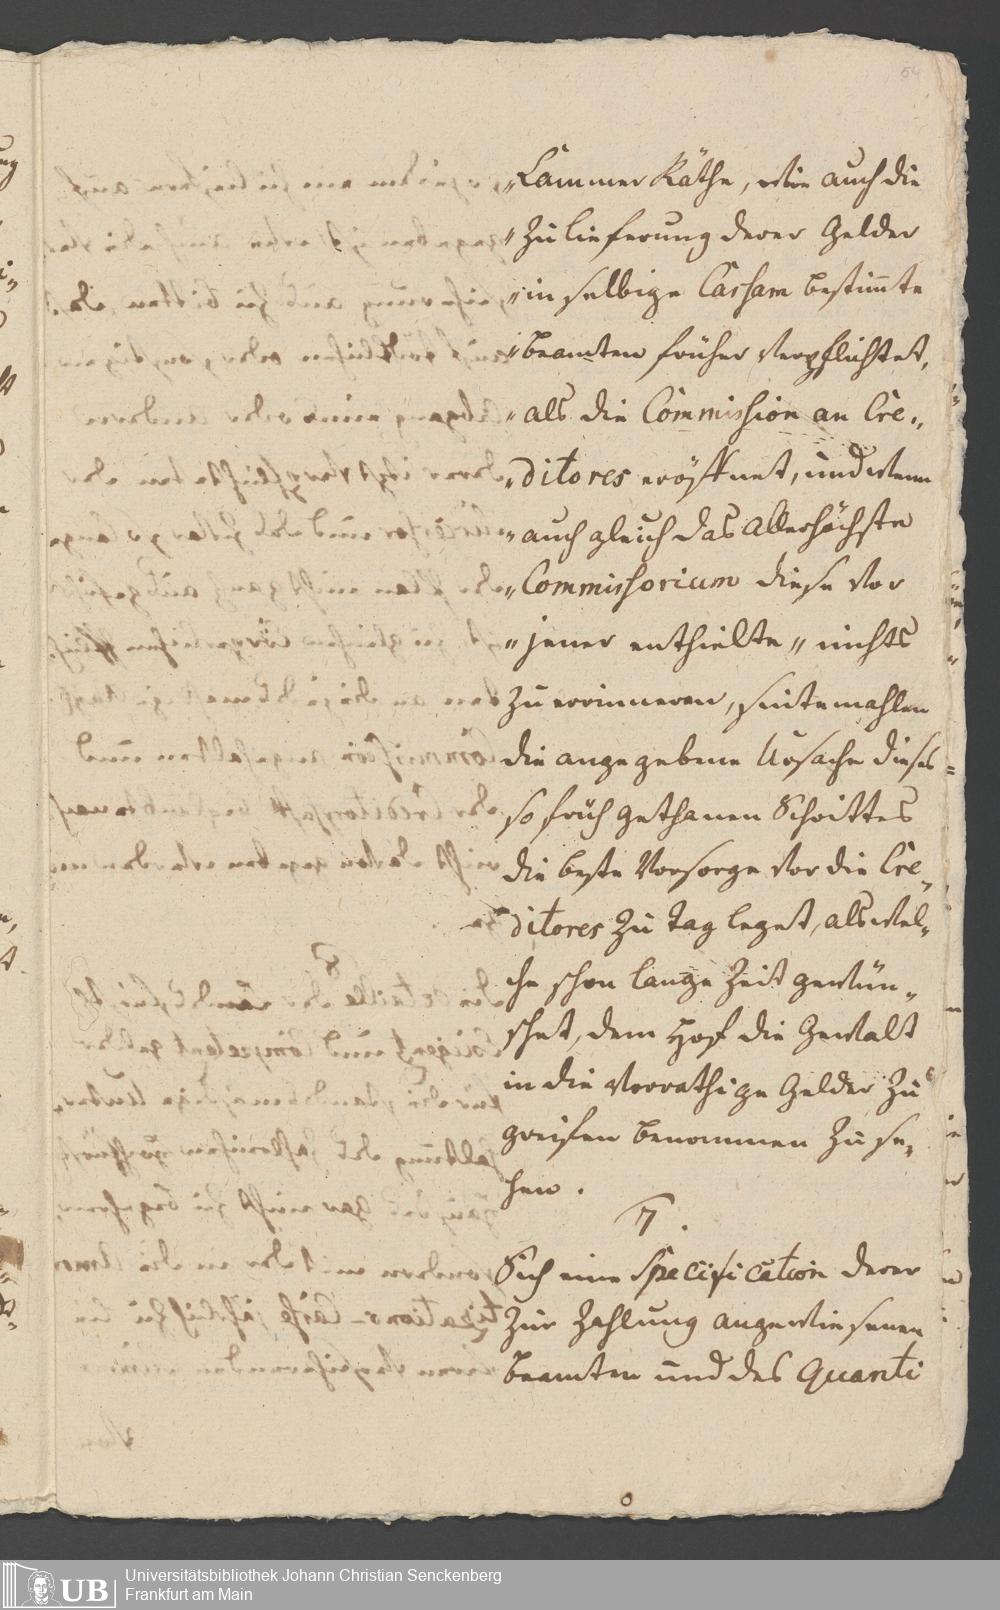 54
„Cammer Räthe, wie auch die
„zu lieferung derer Gelder
„in selbige Cassam bestimte
„beamten früher verpflichtet,
„als die Commission an Cre„
„ditores eröffnet, und wenn
„auch gleich das allerhöchste
„Commissorium diese vor
„jener enthielte„ nichts
zu erinneren, sintemahlen
die angegebene Ursache dieses
so früh gethanen Schrittes
die beste Vorsorge vor die Cre„
ditores zu tag leget, als wel„
che schon lange Zeit gewün„
schet, dem Hof die Gewalt
in die Vorrathige Gelder zu
greifen benommen zu se„
hen.
7.
Sich eine Specification derer
zur Zahlung angewiesenen
beamten und des quanti
UB
Universitätsbibliothek Johann Christian Senckenberg
Frankfurt am Main